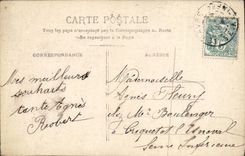 CARTE POSTALE
Tous les pays étrangers n'acceptent pas la Correspondance au Recto
Se renseigner à la Poste
CORRESPONDANCE
ADRESSE
Mes meilleurs
souhaits
tante Agnès
Robert
Mademoiselle
Denis Fleury
chez Mr Boulenger
à Criquetot l'Esneval
Seine Inférieure